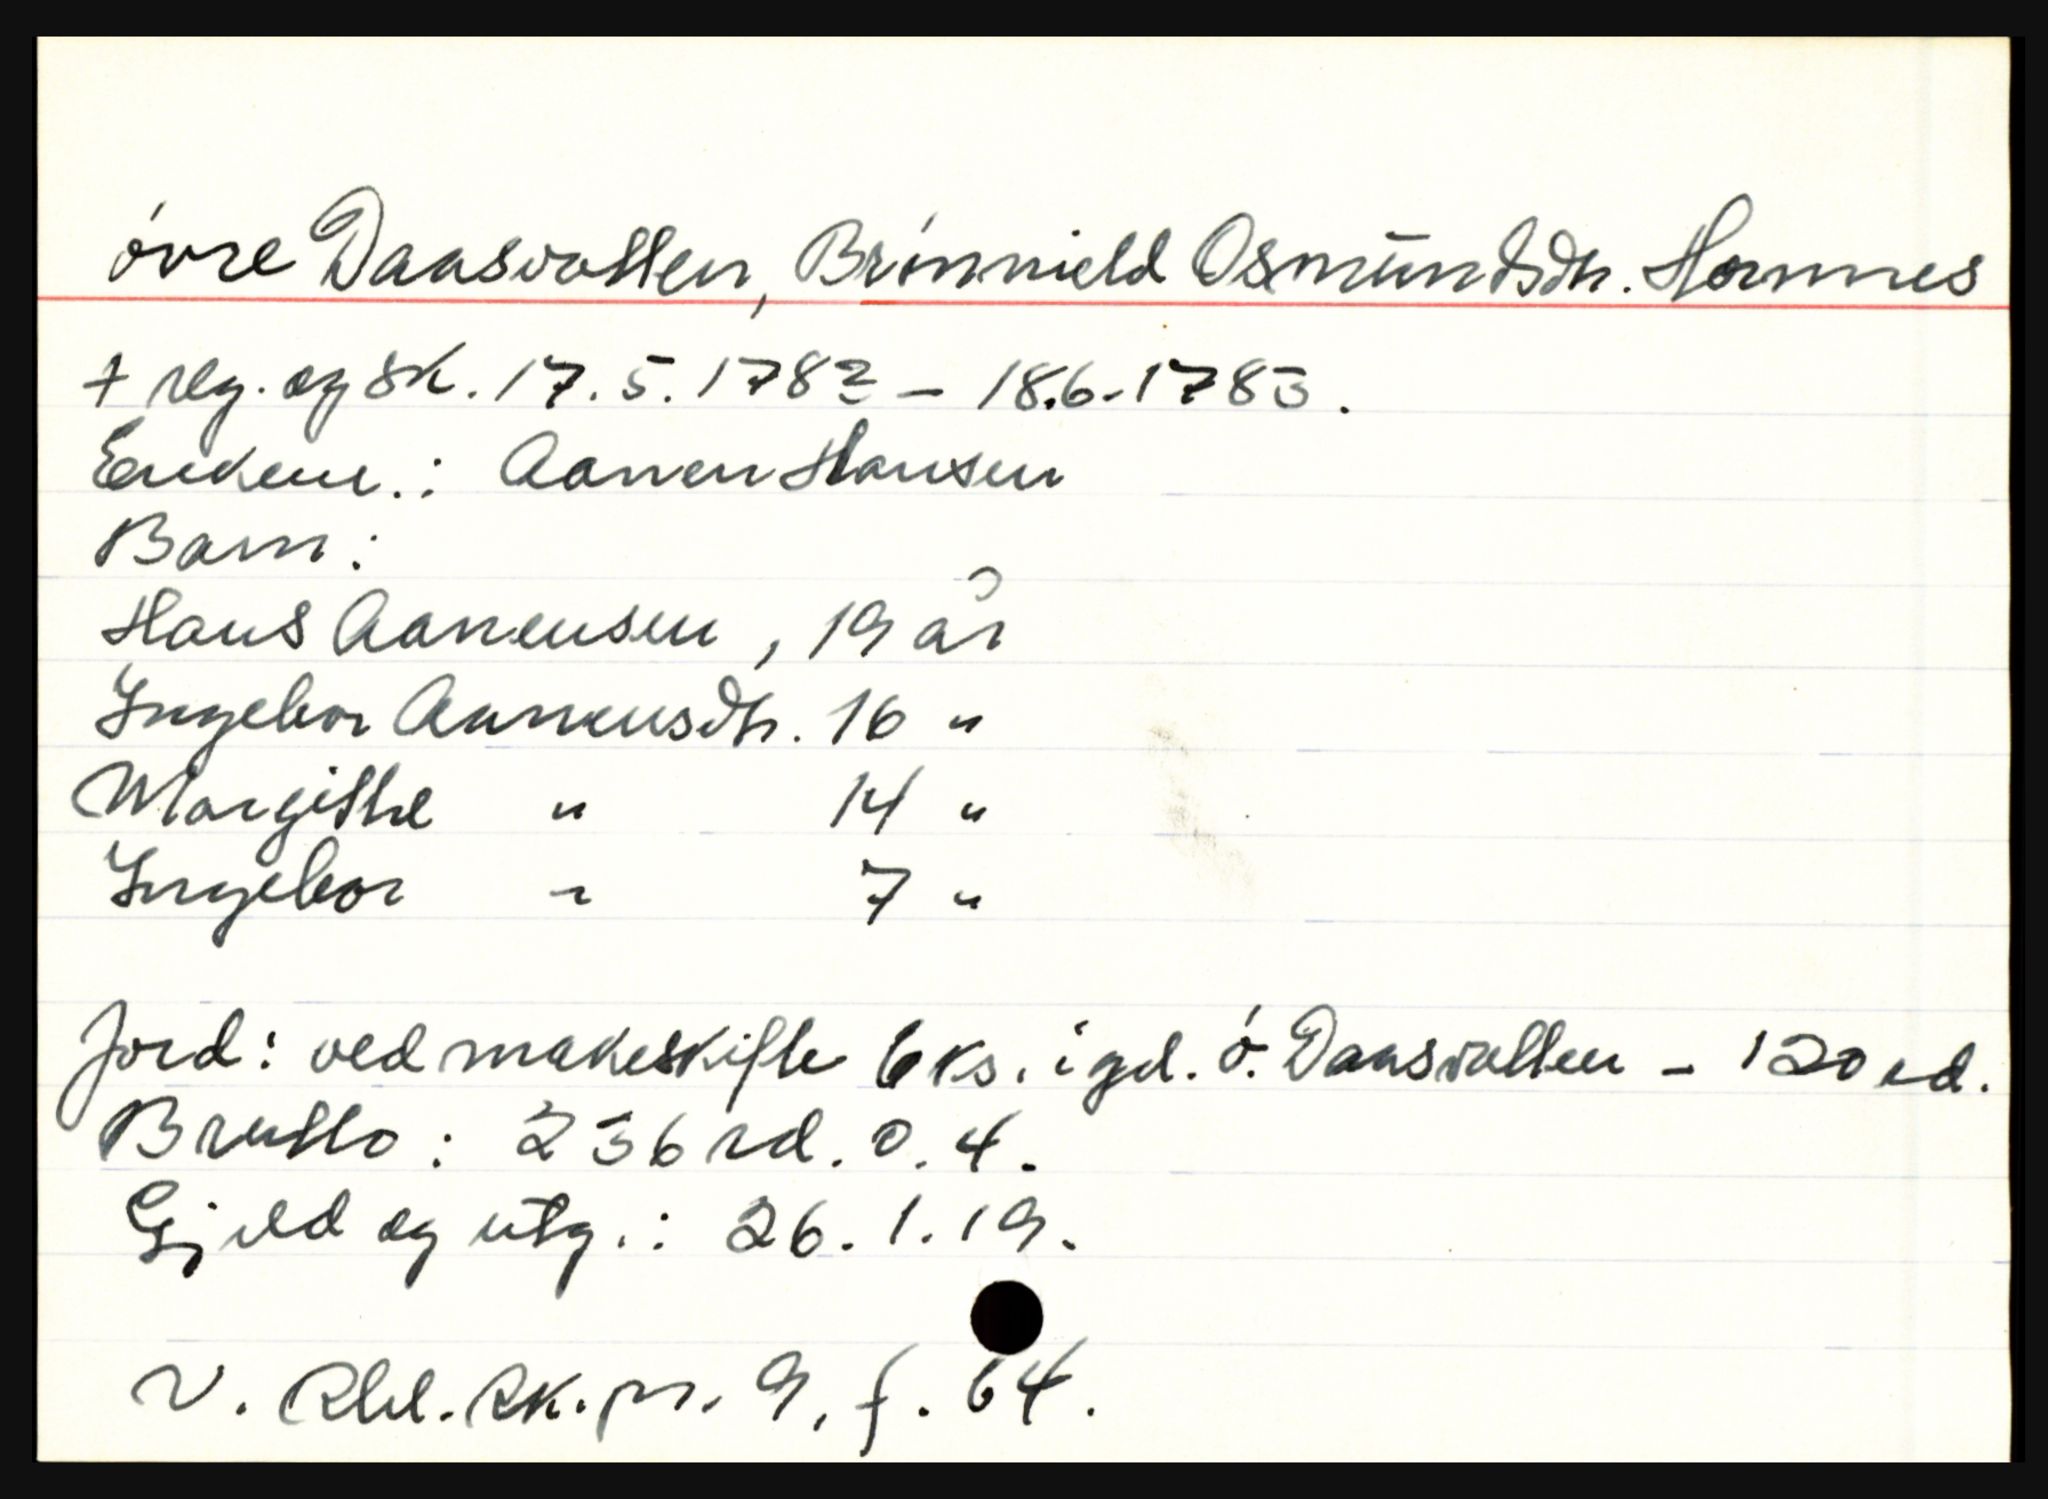 øvre Daasvatten, Brønnield Osmundsdtr. Hornnes
+ reg. og sk. 17.5.1782 - 18.6.1783.
Enkem.: Aanen Hansen
Barn:
Hans Aanensen, 19 år
Ingebor Aanensdtr. 16 "
Margithe " 14 "
Ingebor " 7 "
Jord: ved makeskifte 6 ks. i gd. ø. Daasvatten - 120 rd.
Brutto: 236 rd. 0. 4.
Gjeld og utg.: 26. 1. 19.
V. Rbl. sk. pr. 9, f. 64.